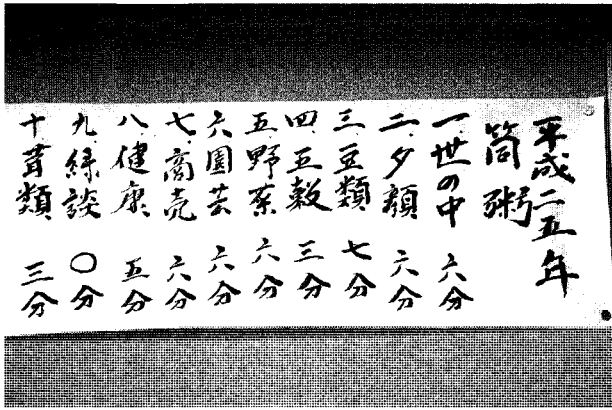 平成二五年
筒粥
一世の中 六分
二、夕顔 六分
三、豆類 七分
四、五穀 三分
五、野菜 六分
六園芸 六分
七、商売 六分
八、健康 五分
九、縁談 〇分
十茸類 三分